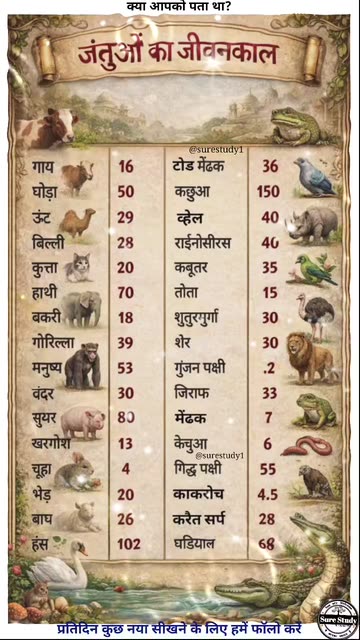 क्या आपको पता था?
जंतुओं का जीवनकाल
@surestudy1
गाय 16 टोड मेंढक 36
घोड़ा 50 कछुआ 150
ऊंट 29 व्हेल 40
बिल्ली 28 राईनोसीरस 40
कुत्ता 20 कबूतर 35
हाथी 70 तोता 15
बकरी 18 शुतुरगुर्गा 30
गोरिल्ला 39 शेर 30
मनुष्य 53 गुंजन पक्षी .2
वंदर 30 जिराफ 33
सुयर 80 मेंढक 7
खरगोश 13 केचुआ 6
@surestudy1
चूहा 4 गिद्ध पक्षी 55
भेड़ 20 काकरोच 4.5
बाघ 26 करैत सर्प 28
हंस 102 घडियाल 68
Sure Study
प्रतिदिन कुछ नया सीखने के लिए हमें फॉलो करें